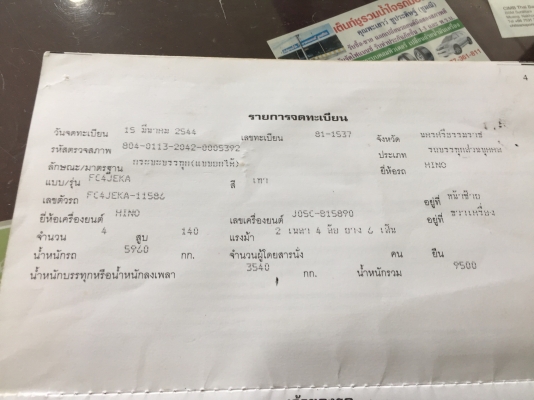 เต็นท์รวมน้ำใจรถ
CIMB Thai
4
รายการจดทะเบียน
วันจดทะเบียน 15 มีนาคม 2544 เลขทะเบียน 81-1537 จังหวัด นครศรีธรรมราช
รหัสตรวจสภาพ 804-0113-2042-0005392 ประเภท
ลักษณะ/มาตรฐาน ยี่ห้อรถ HINO
แบบ/รุ่น FC4JEKA สี เทา
เลขตัวรถ FC4JEKA-11586 อยู่ที่ หน้าซ้าย
ยี่ห้อเครื่องยนต์ HINO เลขเครื่องยนต์ J05C-B15890 อยู่ที่ ขวาเครื่อง
จำนวน 4 สูบ 140 แรงม้า 2 เพลา 4 ล้อ ยาง 6 เส้น
น้ำหนักรถ 5960 กก. จำนวนผู้โดยสารนั่ง คน ยืน
น้ำหนักบรรทุกหรือน้ำหนักลงเพลา 3540 กก. น้ำหนักรวม 9500